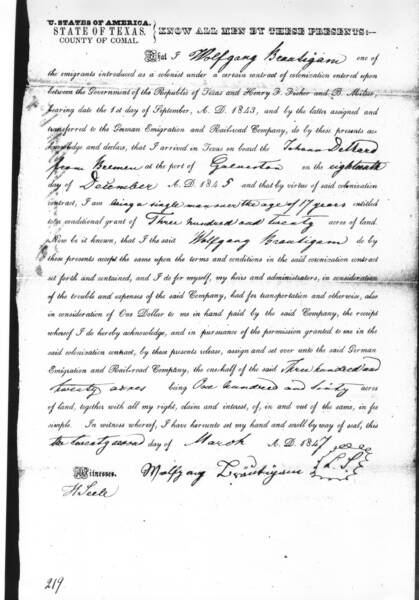 U. STATES OF AMERICA.
STATE OF TEXAS.
COUNTY OF COMAL.
KNOW ALL MEN BY THESE PRESENTS:—
That I Wolfgang Brautigam one of
the emigrants introduced as a colonist under a certain contract of colonization entered upon
between the Government of the Republic of Texas and Henry F. Fisher and B. Miller,
bearing date the 1st day of September, A. D. 1843, and by the latter assigned and
transferred to the German Emigration and Railroad Company, do by these presents ac-
knowledge and declare, that I arrived in Texas on board the Johann Dethard
from Bremen at the port of Galveston on the
day of December A. D. 1845 and that by virtue of said colonization
contract, I am being a single man over the age of 17 years entitled
to a conditional grant of Three hundred and twenty acres of land.
Now be it known, that I the said Wolfgang Brautigam do by
these presents accept the same upon the terms and conditions in the said colonization contract
set forth and contained, and I do for myself, my heirs and administrators, in consideration
of the trouble and expenses of the said Company, had for transportation and otherwise, also
in consideration of One Dollar to me in hand paid by the said Company, the receipt
whereof I do hereby acknowledge, and in pursuance of the permission granted to me in the
said colonization contract, by these presents release, assign and set over unto said German
Emigration and Railroad Company, the one half of the said Three hundred and
twenty acres being One hundred and sixty acres
of land, together with all my right, claim and interest, of, in and out of the same, in fee
simple. In witness whereof, I have hereunto set my hand and scroll by way of seal, this
the twenty second day of March A. D. 1847
Witnesses. Wolfgang Bräutigam L. S.
H. Seele
219